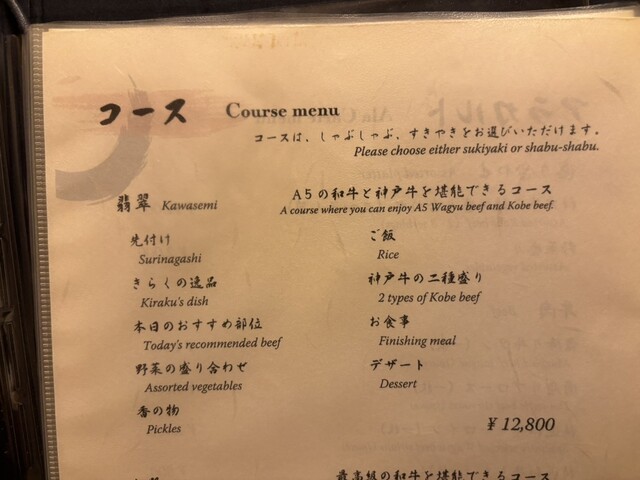 コース Course menu
コースは、しゃぶしゃぶ、すきやきをお選びいただけます。
Please choose either sukiyaki or shabu-shabu.
翡翠 Kawasemi
A5の和牛と神戸牛を堪能できるコース
A course where you can enjoy A5 Wagyu beef and Kobe beef.
先付け
Surinagashi
きらくの逸品
Kiraku's dish
本日のおすすめ部位
Today's recommended beef
野菜の盛り合わせ
Assorted vegetables
香の物
Pickles
ご飯
Rice
神戸牛の二種盛り
2 types of Kobe beef
お食事
Finishing meal
デザート
Dessert
¥12,800
最高級の和牛と堪能できるコース